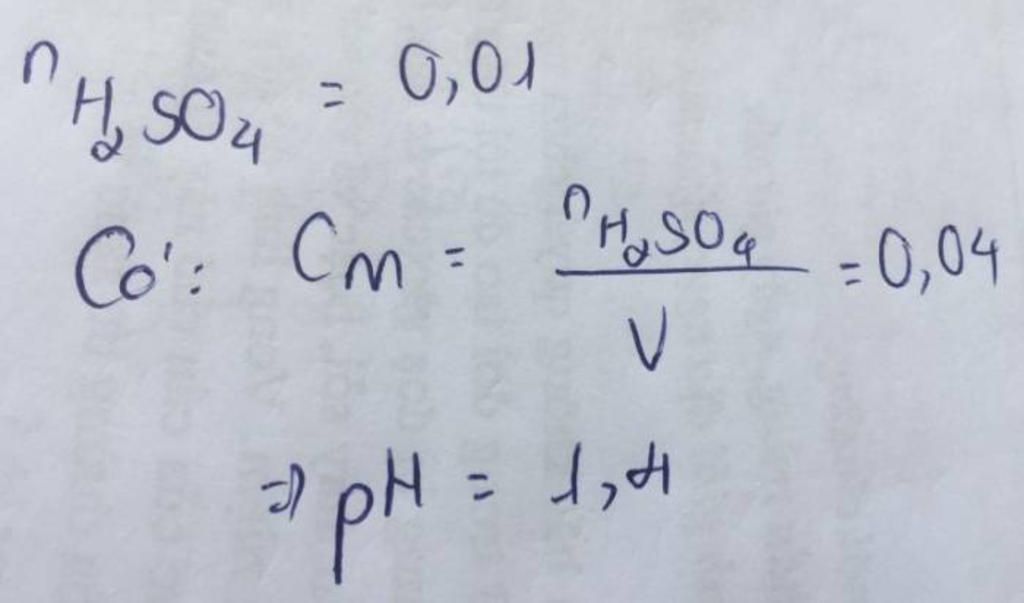 nH₂SO₄ = 0,01
Có: Cm = nH₂SO₄ / V = 0,04
=> pH = 1,4